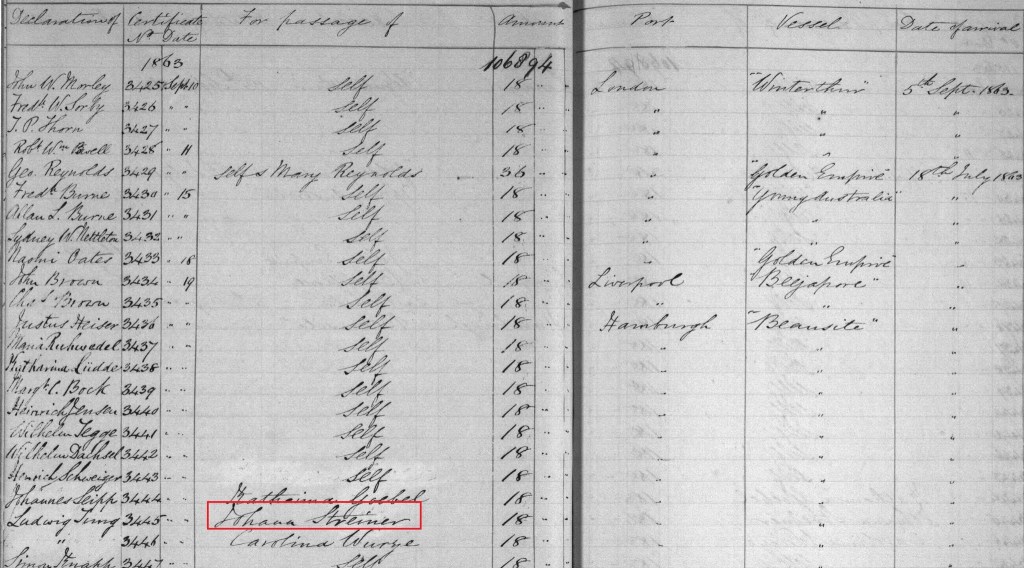 Declaration of Certificate For passage of Amount Port Vessel Date of arrival
No Date
1863 10689 4
John W. Morley 3425 Sept 10 Self 18 " London "Winterthur" 5th Sept. 1863.
Fredk W. Sorby 3426 " " Self 18 " " " "
T. P. Thorn 3427 " " Self 18 " " " "
Robt Wm 3428 " 11 Self 18 " " " "
Geo. Reynolds 3429 " " self & Mary Reynolds 36 " " "Golden Empire" 18th July 1863
Fredk Burne 3430 " 15 Self 18 " " "Young Australia" "
Allan S. Burne 3431 " " Self 18 " " " "
Sydney W. Nettleton 3432 " " Self 18 " " " "
Naomi Oates 3433 " 18 Self 18 " " "Golden Empire" "
John Brown 3434 " 19 Self 18 " Liverpool "Beejapore" "
Chas S Brown 3435 " " Self 18 " " " "
Justus Heiser 3436 " " Self 18 " Hamburgh "Beausite" "
Maria 3437 " " Self 18 " " " "
Katharina Ludde 3438 " " Self 18 " " " "
Margt C. Bock 3439 " " Self 18 " " " "
Heinrich Jensen 3440 " " Self 18 " " " "
Wilhelm Tegge 3441 " " Self 18 " " " "
Wilhelm 3442 " " Self 18 " " " "
Henrich Schweiger 3443 " " Self 18 " " " "
Johannes Seipp 3444 " " Katharina Goebel 18 " " " "
Ludwig Jung 3445 " " Johann Streiner 18 " " " "
" 3446 " " Carolina Wurze 18 " " " "
Simon Knapp 3447 " " Self 18 " " " "